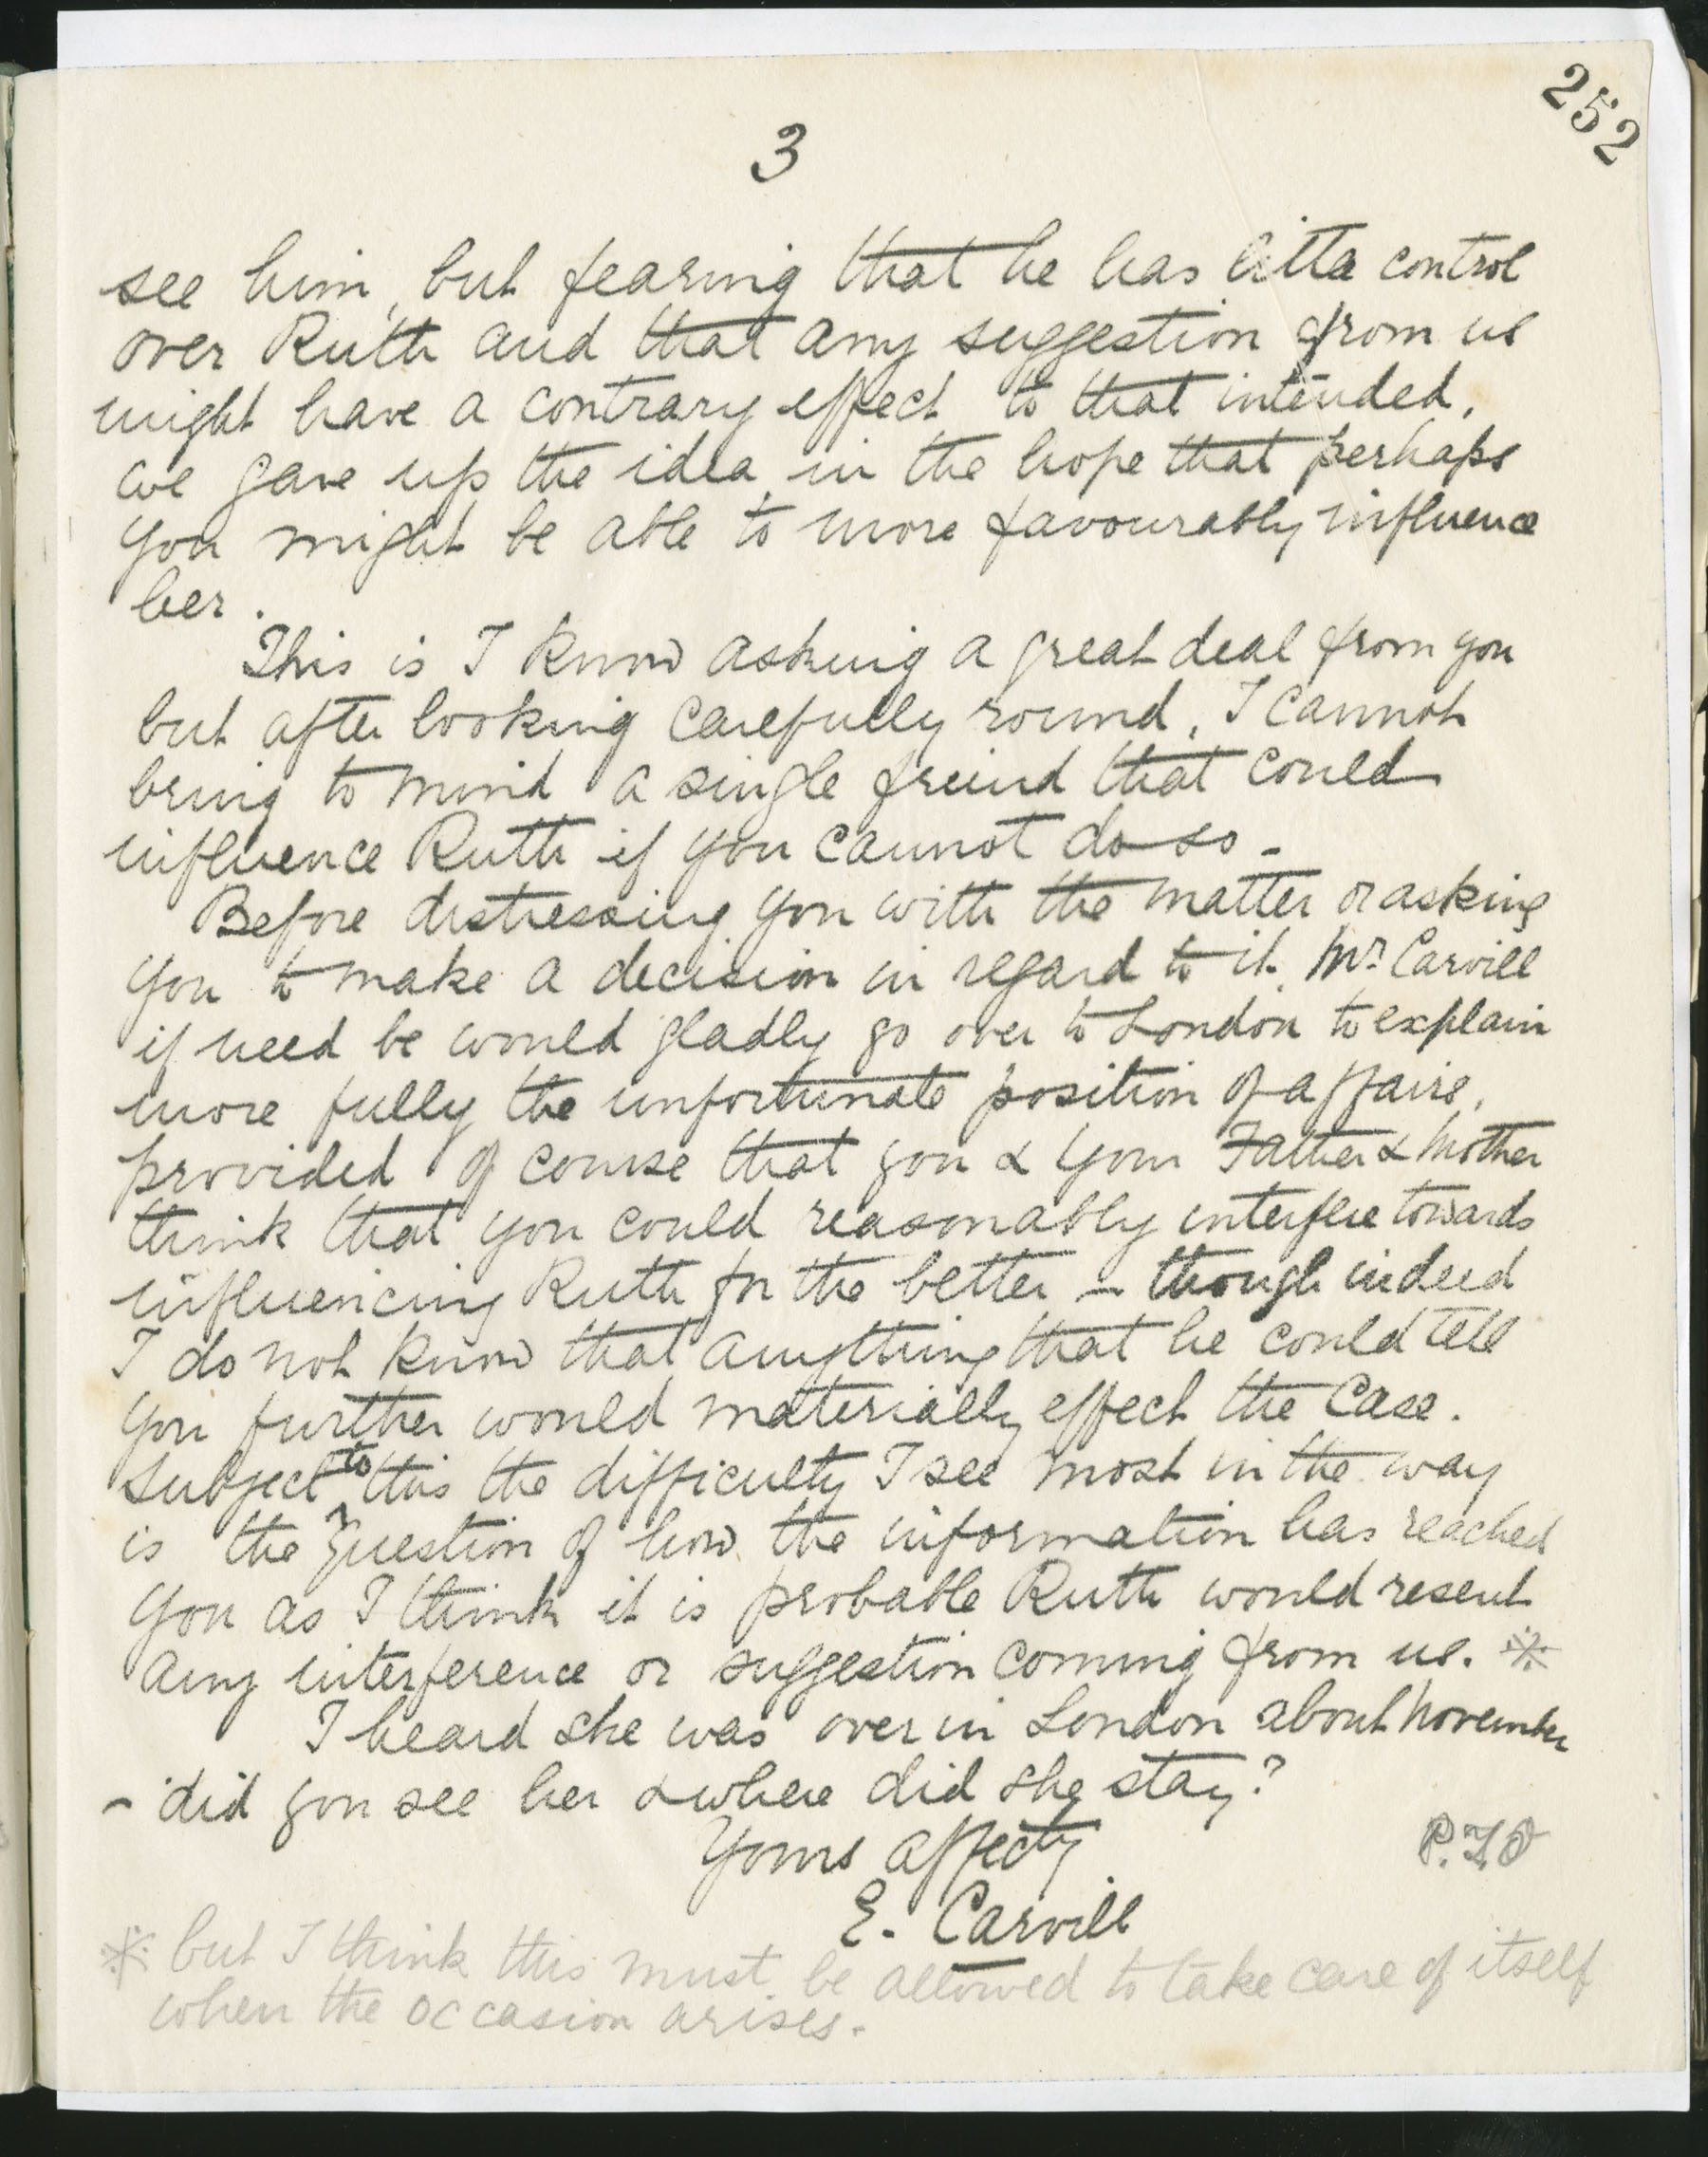 252
3
see him, but fearing that he has little control
over Ruth and that any suggestion from us
might have a contrary effect to that intended,
we gave up the idea, in the hope that perhaps
you might be able to more favourably influence
her.
This is I know asking a great deal from you
but after looking carefully round, I cannot
bring to mind a single freind that could
influence Ruth if you cannot do so -
Before distressing you with the matter or asking
you to make a decision in regard to it, Mr Carvill
if need be would gladly go over to London to explain
more fully the unfortunate position of affairs,
provided of course that you & your Father & Mother
think that you could reasonably interfere towards
influencing Ruth for the better - though indeed
I do not know that anything that he could tell
you further would materially effect the case.
Subject to this the difficulty I see most in the way
is the question of how the information has reached
you as I think it is probable Ruth would resent
any interference or suggestion coming from us. ※
I heard she was over in London about November
- did you see her & where did she stay?
Yours affecty
P.T.O
E. Carvill
※ but I think this must be allowed to take care of itself
when the occasion arises.